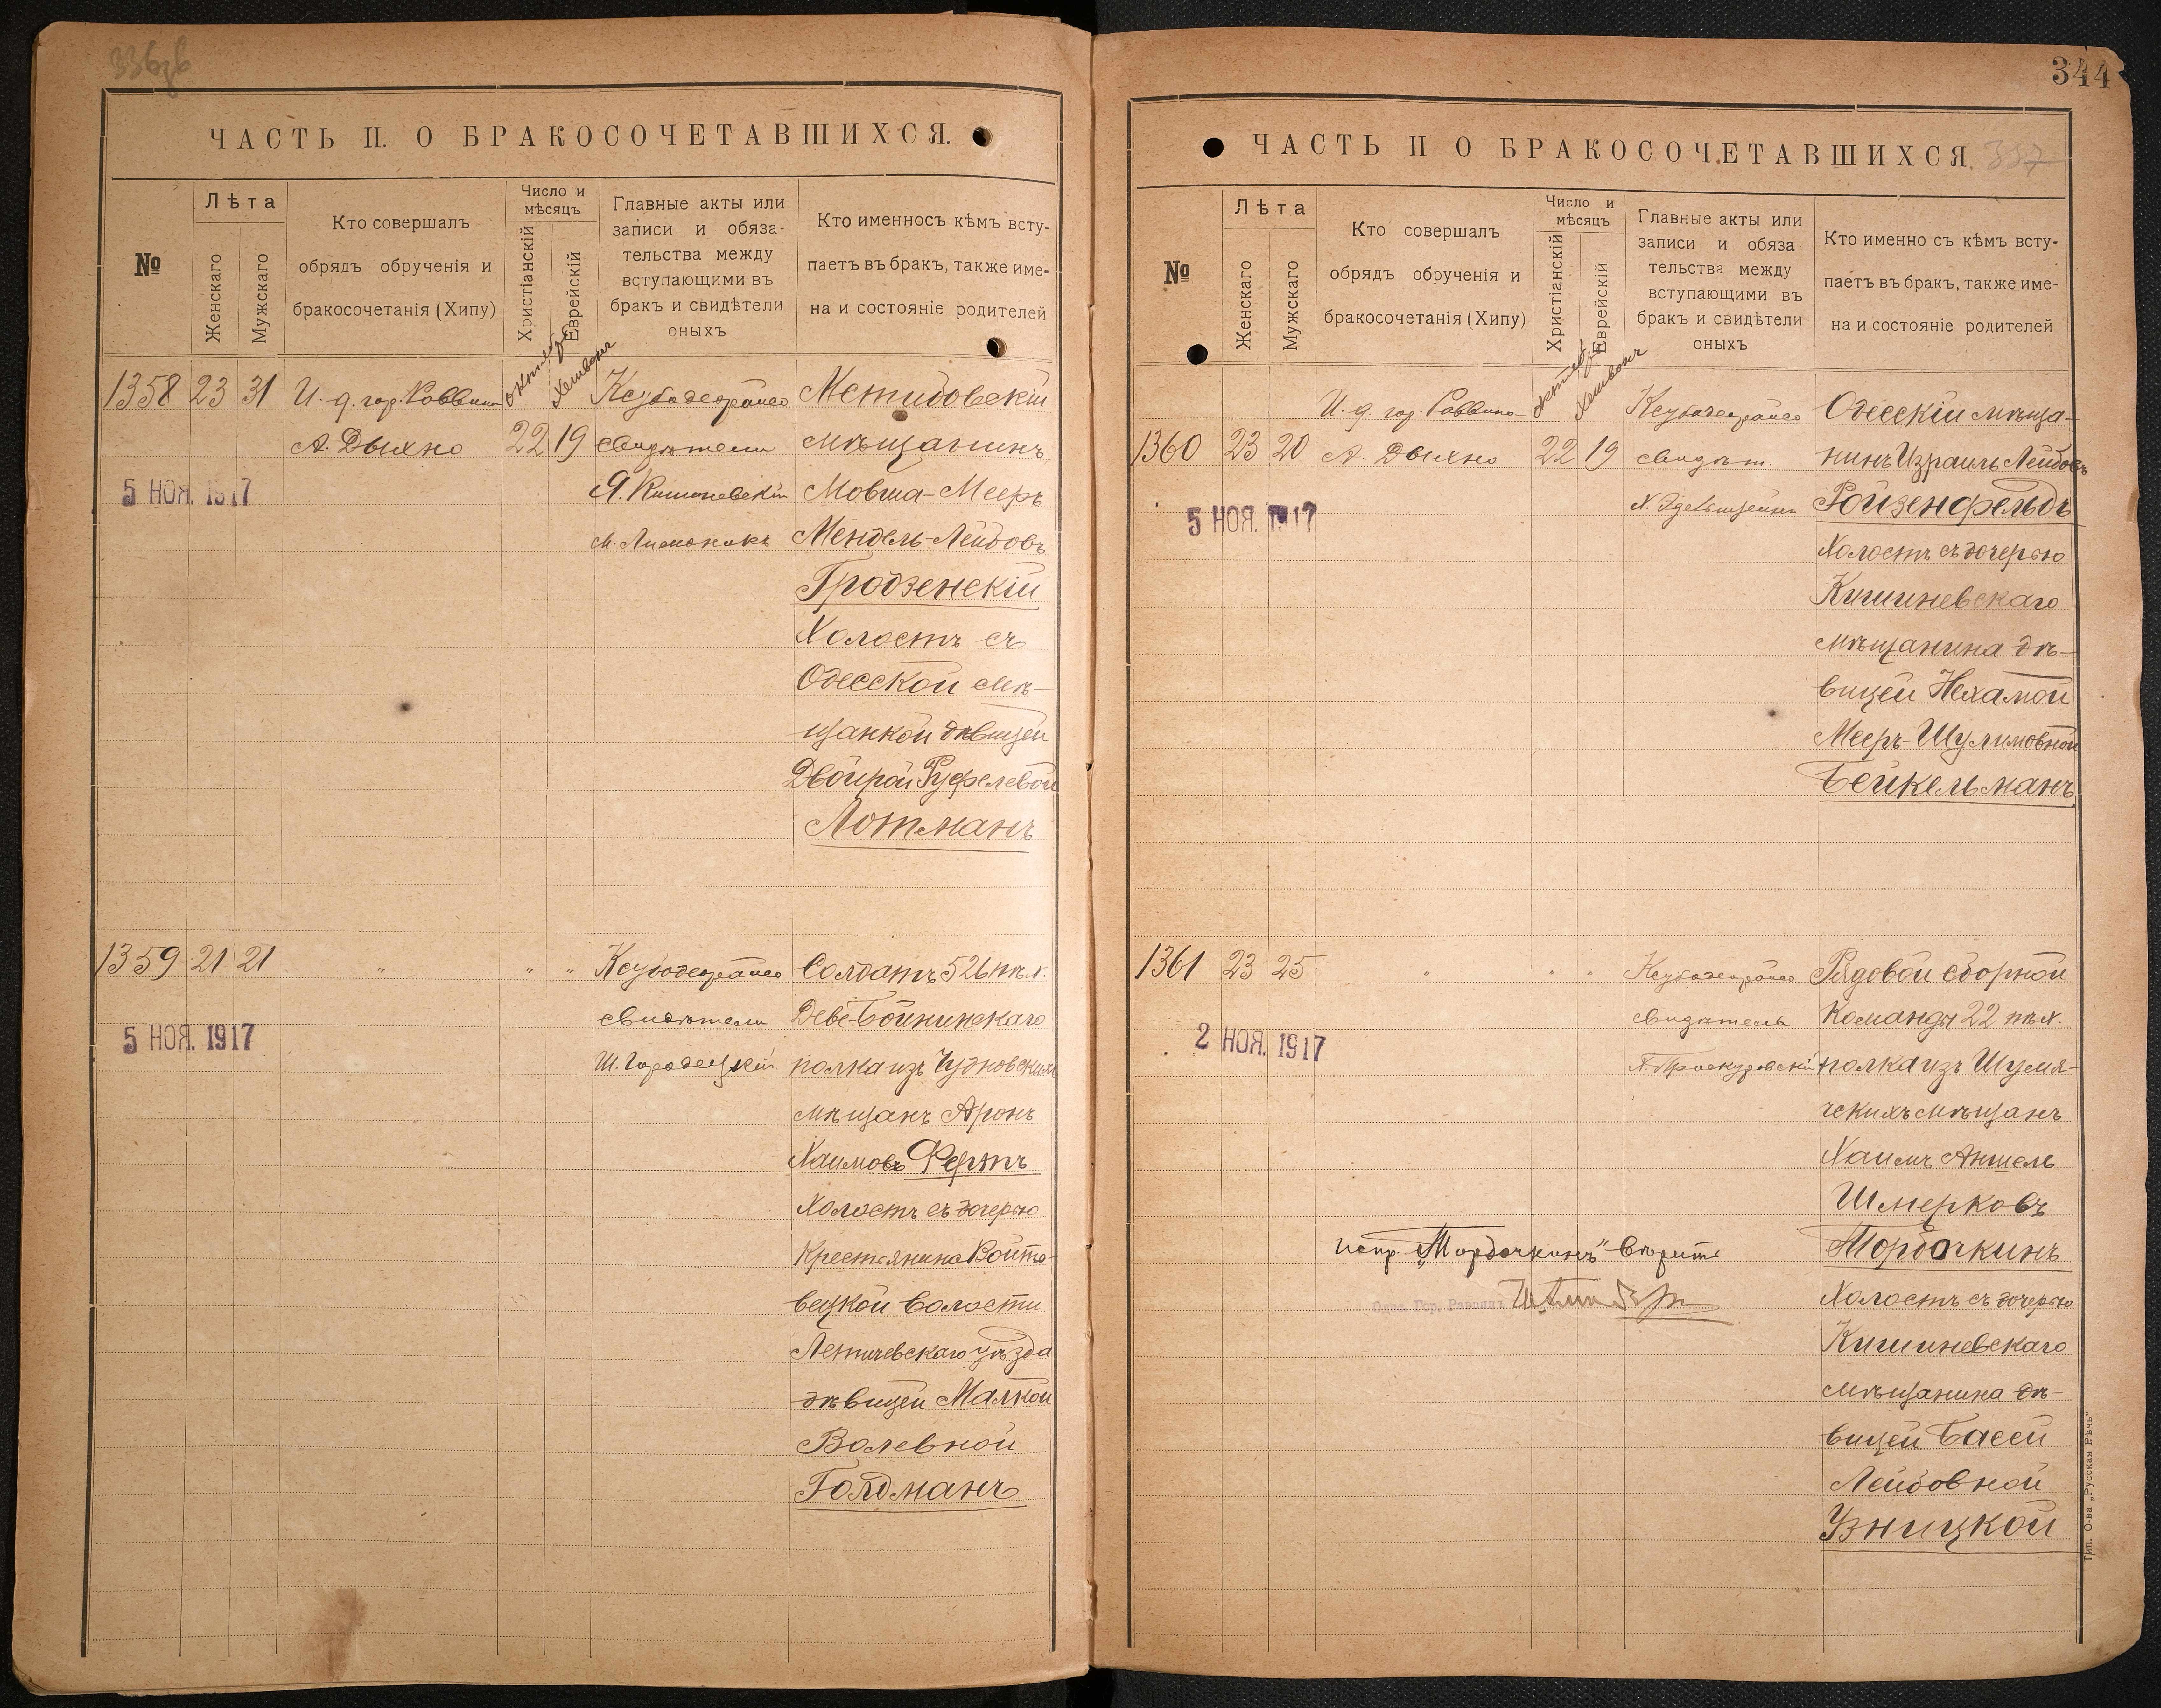 ЧАСТЬ II. О БРАКОСОЧЕТАВШИХСЯ.
№
Лѣта
Женскаго
Мужскаго
Кто совершалъ
обрядъ обрученія и
бракосочетанія (Хипу)
Число и
мѣсяцъ
Христіанскій
Еврейскій
Главные акты или
записи и обяза-
тельства между
вступающими въ
бракъ и свидѣтели
оныхъ
Кто именносъ кѣмъ всту-
паетъ въ бракъ, также име-
на и состояніе родителей
1358 23 31
И. д. гор. Раввина
А. Дыхно
октября
Хешвонъ
22 19
свидѣтели
Я. Кишиневскій
5 НОЯ. 1917
мѣщанинъ
Мовша-Мееръ
Мендель-Лейбовъ
Гродзенскій
Холостъ съ
Одесской мѣ-
щанкой дѣвицей
Двойрой
Лотманъ
1359 21 21
" " "
свидѣтели
Ш. Городецкій
5 НОЯ. 1917
Солдатъ 526 пѣх.
Деве-Бойнинскаго
полка изъ Чудновскихъ
мѣщанъ Аронъ
Хаимовъ Фертъ
Холостъ съ дочерью
Крестьянина Войто-
вецкой волости
Летичевскаго уѣзда
дѣвицей Малкой
Волевной
Голдманъ
344
ЧАСТЬ II О БРАКОСОЧЕТАВШИХСЯ.
337
№
Лѣта
Женскаго
Мужскаго
Кто совершалъ
обрядъ обрученія и
бракосочетанія (Хипу)
Число и
мѣсяцъ
Христіанскій
Еврейскій
Главные акты или
записи и обяза
тельства между
вступающими въ
бракъ и свидѣтели
оныхъ
Кто именно съ кѣмъ всту-
паетъ въ бракъ, также име-
на и состояніе родителей
1360 23 20
И. д. гор. Раввина
А. Дыхно
октября
Хешвонъ
22 19
свидѣт
Х. Эдельштейнъ
5 НОЯ. 1917
Одесскій мѣща-
нинъ Израиль Лейбовъ
Ройзенфельдъ
Холостъ съ дочерью
Кишиневскаго
мѣщанина дѣ-
вицей Нехамой
Мееръ-Шулимовной
Бейкельманъ
1361 23 25
" " "
свидѣтель
Проскуровскій
2 НОЯ. 1917
Рядовой сборной
Команды 22 пѣх.
полка изъ Шумя-
чскихъ мѣщанъ
Хаимъ Аншель
Шмерковъ
Мордочкинъ
Холостъ съ дочерью
Кишиневскаго
мѣщанина дѣ-
вицей Басей
Лейбовной
Узницкой
испр. „Мордочкинъ" вѣрить
Гор. Раввинъ
Тип. О-ва „Русская Рѣчь"